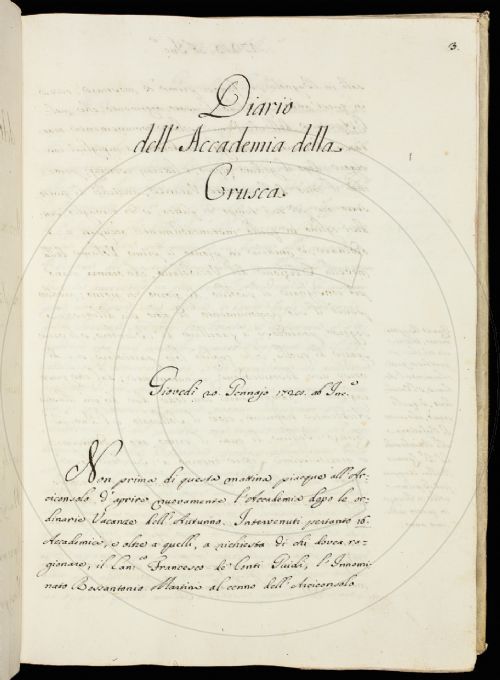 3.
Diario
dell' Accademia della
Crusca.
Giovedì 20. Gennajo ab Inc.º
Non prima di questa mattina piacque all' Ar-
ciconsolo d' aprire nuovamente l' Accademia dopo le or-
dinarie Vacanze dell' Autunno. Intervenuti pertanto 16.
Accademici, e oltre a quelli, a richiesta di chi dovea ra-
gionare, il Can.co Francesco de' Conti Guidi, l' Innomi-
nato Bossantonio Martini al cenno dell' Arciconsolo